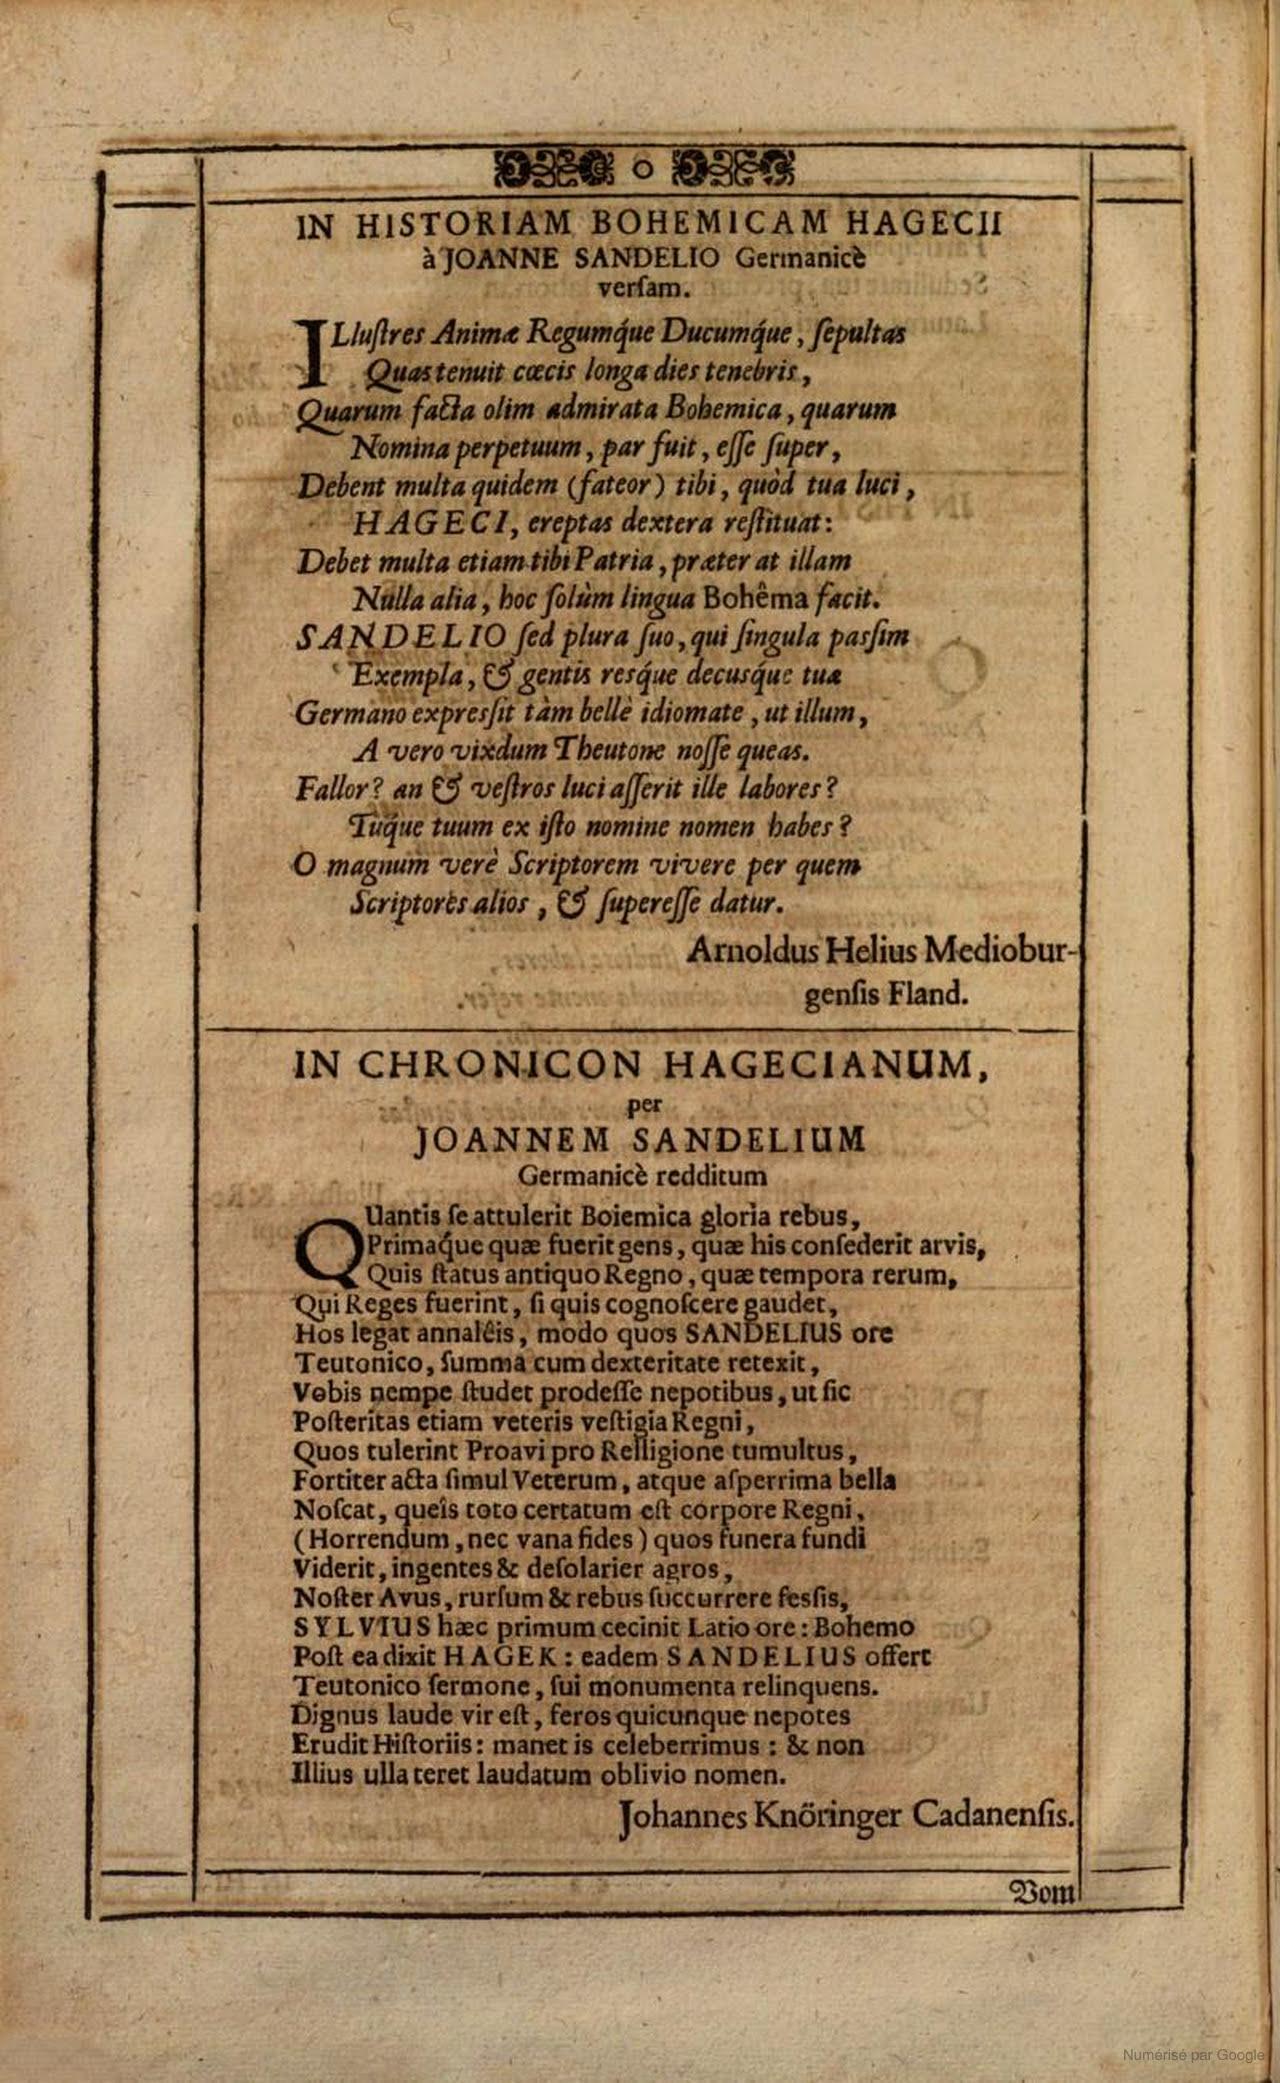 IN HISTORIAM BOHEMICAM HAGECII
à JOANNE SANDELIO Germanicè
verſam.
ILluſtres Animæ Regumq́ue Ducumq́ue, ſepultas
Quas tenuit cæcis longa dies tenebris,
Quarum facta olim admirata Bohemica, quarum
Nomina perpetuum, par fuit, eſſe ſuper,
Debent multa quidem (fateor) tibi, quòd tua luci,
HAGECI, ereptas dextera reſtituat:
Debet multa etiam tibi Patria, præter at illam
Nulla alia, hoc ſolùm lingua Bohêma facit.
SANDELIO ſed plura ſuo, qui ſingula paſſim
Exempla, & gentis resq́ue decusq́ue tuæ
Germano expreſſit tàm bellè idiomate, ut illum,
A vero vixdum Theutone noſſe queas.
Fallor? an & veſtros luci aſſerit ille labores?
Tuq́ue tuum ex iſto nomine nomen habes?
O magnum verè Scriptorem vivere per quem
Scriptores alios, & ſupereſſe datur.
Arnoldus Helius Mediobur-
genſis Fland.
IN CHRONICON HAGECIANUM,
per
JOANNEM SANDELIUM
Germanicè redditum
QUantis ſe attulerit Boiemica gloria rebus,
Primaq́ue quæ fuerit gens, quæ his conſederit arvis,
Quis ſtatus antiquo Regno, quæ tempora rerum,
Qui Reges fuerint, ſi quis cognoſcere gaudet,
Hos legat annalêis, modo quos SANDELIUS ore
Teutonico, ſumma cum dexteritate retexit,
Vobis nempe ſtudet prodeſſe nepotibus, ut ſic
Poſteritas etiam veteris veſtigia Regni,
Quos tulerint Proavi pro Relligione tumultus,
Fortiter acta ſimul Veterum, atque aſperrima bella
Noſcat, queîs toto certatum eſt corpore Regni,
(Horrendum, nec vana fides) quos funera fundi
Viderit, ingentes & deſolarier agros,
Noſter Avus, rurſum & rebus ſuccurrere feſſis,
SYLVIUS hæc primum cecinit Latio ore: Bohemo
Poſt ea dixit HAGEK: eadem SANDELIUS offert
Teutonico ſermone, ſui monumenta relinquens.
Dignus laude vir eſt, feros quicunque nepotes
Erudit Hiſtoriis: manet is celeberrimus: & non
Illius ulla teret laudatum oblivio nomen.
Johannes Knöringer Cadanenſis.
Vom
Numérisé par Google